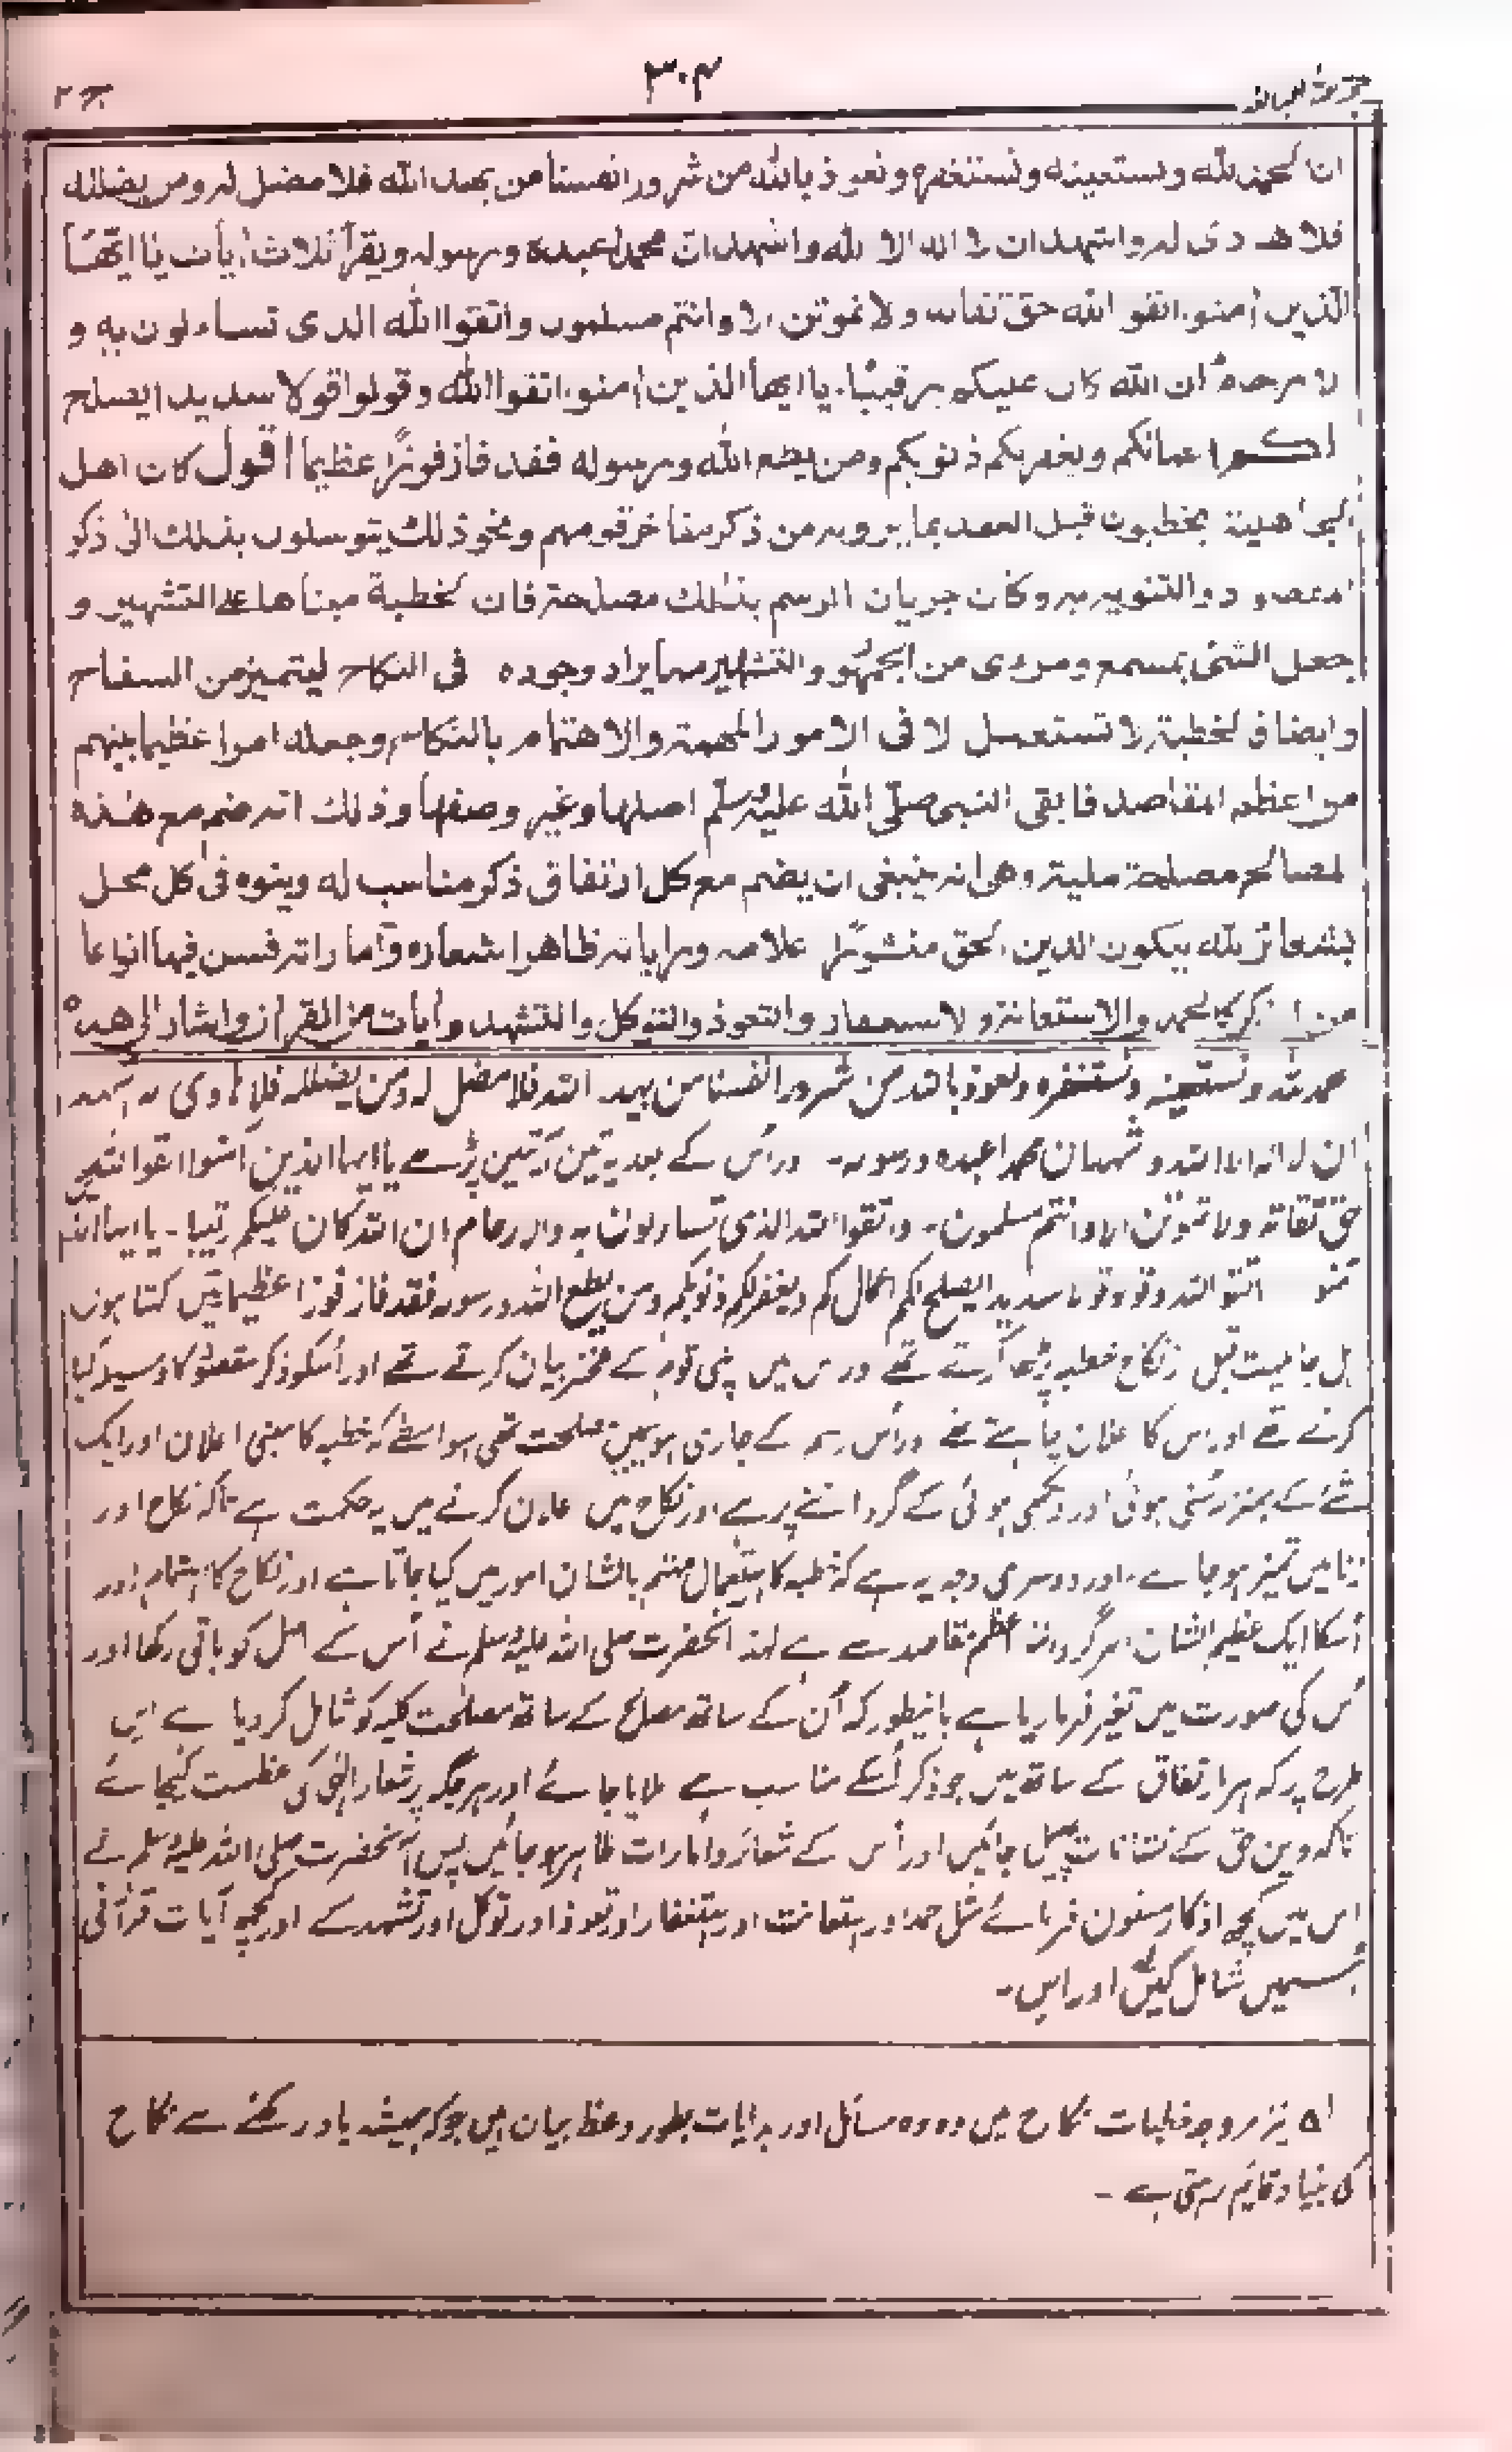 حجۃ اللہ البالغہ ۳۰۴ ج ۲
ان الحمد لله ونستعينه ونستغفره ونعوذ بالله من شرور انفسنا من يهد الله فلا مضل له ومن يضلله
فلا هادى له واشهد ان لا اله الا الله واشهد ان محمدا عبده ورسوله ويقرأ ثلاث اٰيات يا ايها
الذين اٰمنوا اتقوا الله حق تقاته ولا تموتن الا وانتم مسلمون واتقوا الله الذى تساءلون به و
الارحام ان الله كان عليكم رقيبا. يا ايها الذين اٰمنوا اتقوا الله وقولوا قولا سديدا يصلح
لكم اعمالكم ويغفر لكم ذنوبكم ومن يطع الله ورسوله فقد فاز فوزا عظيما اقول كان اهل
الجاهلية يخطبون قبل العقد بما يرونه من ذكر مفاخر قومهم ونحو ذلك يتوسلون بذلك الى ذكر
المقصود والتنويه به وكان جريان الرسم بذلك مصلحة فان الخطبة مبناها على التشهير و
جعل الشئ بمسمع ومرءى من الجمهور والتشهير مما يراد وجوده فى النكاح ليتميز من السفاح
وايضا فالخطبة لا تستعمل الا فى الامور المهمة والاهتمام بالنكاح وجعله امرا عظيما بينهم
من اعظم المقاصد فابقى النبى صلى الله عليه وسلم اصلها وغير وصفها وذلك انه ضم مع هذه
المصالح مصلحة ملية وهى انه ينبغى ان يضم مع كل ارتفاق ذكر مناسب له وينوه فى كل محل
بشعائر الله ليكون الدين الحق منشورا اعلامه وراياته ظاهرا شعاره وأماراته فسن فيها انواعا
من الذكر كالحمد والاستعانة والاستغفار والتعوذ والتوكل والتشهد واٰيات من القراٰن واشار الى هذه
الحمد لله ونستعينه ونستغفره ونعوذ بالله من شرور انفسنا من يهد الله فلا مضل له ومن يضلله فلا هادى له اشهد
ان لا اله الا الله واشهد ان محمدا عبده ورسوله۔ اور اُس کے بعد یہ تین آیتیں پڑہے یا ایہا الذین آمنوا اتقوا اللہ
حق تقاتہ ولا تموتن الا وانتم مسلمون۔ واتقوا اللہ الذی تساءلون بہ والارحام ان اللہ کان علیکم رقیبا۔ یا ایہا الذین
آمنوا اتقوا اللہ وقولوا قولا سدیدا یصلح لکم اعمالکم ویغفر لکم ذنوبکم ومن یطع اللہ ورسولہ فقد فاز فوزا عظیما میں کہتا ہوں
اہل جاہلیت قبل از نکاح خطبہ پڑھا کرتے تھے اور اس میں اپنی قوم کے مفاخر بیان کرتے تھے اور اُسکو ذکر مقصود کا وسیلہ کیا
کرتے تھے اور اس کا اعلان چاہتے تھے اور اُس رسم کے جاری ہونیمیں مصلحت تھی اسواسطے کہ خطبہ کا مبنی اعلان اور ایک
شے کے بمنزلہ سُنی ہوئی اور دیکھی ہوئی کے گرداننے پر ہے اور نکاح میں اعلان کرنے میں یہ حکمت ہے تاکہ نکاح اور
زنا میں تمیز ہو جاے۔ اور دوسری وجہ یہ ہے کہ خطبہ کا استعمال مہتم بالشان امور میں کیا جاتا ہے اور نکاح کا اہتمام اور
اُسکا ایک عظیم الشان امر گرداننا اعظم مقاصد سے ہے لہذا آنحضرت صلی اللہ علیہ وسلم نے اُس کے اصل کو باقی رکھا اور
اُس کی صورت میں تغیر فرما دیا ہے باینطور کہ اُن کے ساتھ مصالح کے ساتھ مصلحت ملیہ کو شامل کر دیا ہے اس
طرح پر کہ ہر ارتفاق کے ساتھ میں جو ذکر اُسکے مناسب ہے ملایا جاے اور ہر جگہ پر شعار الٰہی کی عظمت کیجاے
تاکہ دین حق کے نشانات پھیل جائیں اور اُس کے شعائر و امارات ظاہر ہو جائیں پس آنحضرت صلی اللہ علیہ وسلم نے
اس میں کچھ اذکار مسنون فرمائے مثل حمد اور استعانت اور استغفار اور تعوذ اور توکل اور تشہد کے اور کچھ آیات قرآنی
اُسمیں شامل کیں اور اس۔
لہ نیز مروجہ خطبات نکاح میں وہ وہ مسائل اور ہدایات بطور وعظ بیان ہیں جو کہ ہمیشہ یاد رکھنے سے نکاح
کی بنیاد قایم رہتی ہے۔